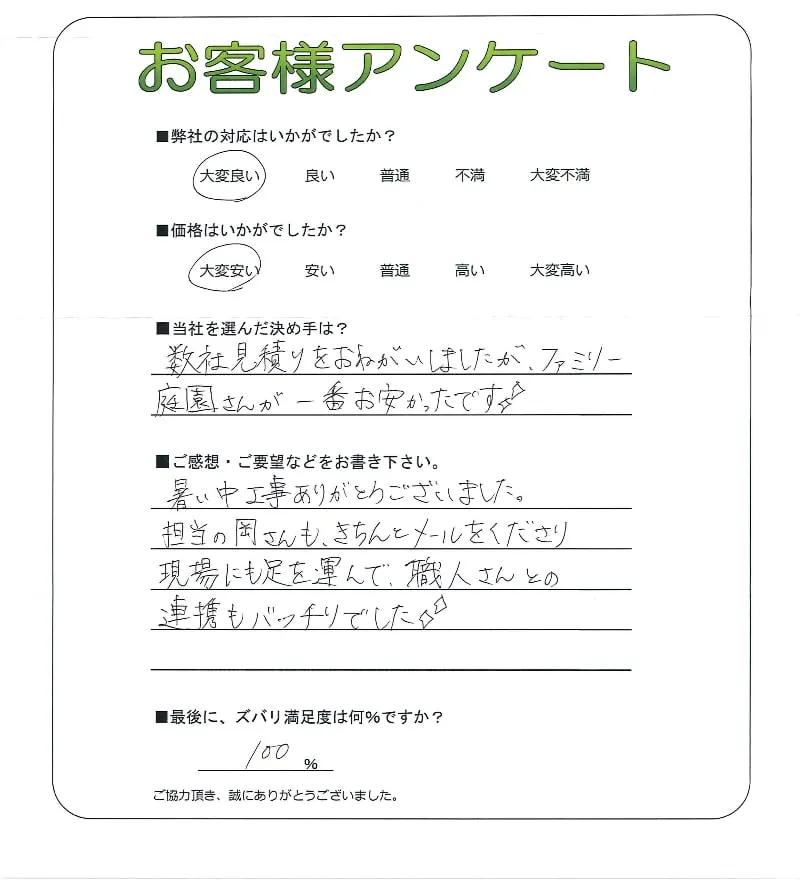 お客様アンケート
■弊社の対応はいかがでしたか？
大変良い 良い 普通 不満 大変不満
■価格はいかがでしたか？
大変安い 安い 普通 高い 大変高い
■当社を選んだ決め手は？
数社見積りをおねがいしましたが、ファミリー
庭園さんが一番お安かったです
■ご感想・ご要望などをお書き下さい。
暑い中工事ありがとうございました。
担当の岡さんも、きちんとメールをくださり
現場にも足を運んで、職人さんとの
連携もバッチリでした
■最後に、ズバリ満足度は何%ですか？
100 %
ご協力頂き、誠にありがとうございました。